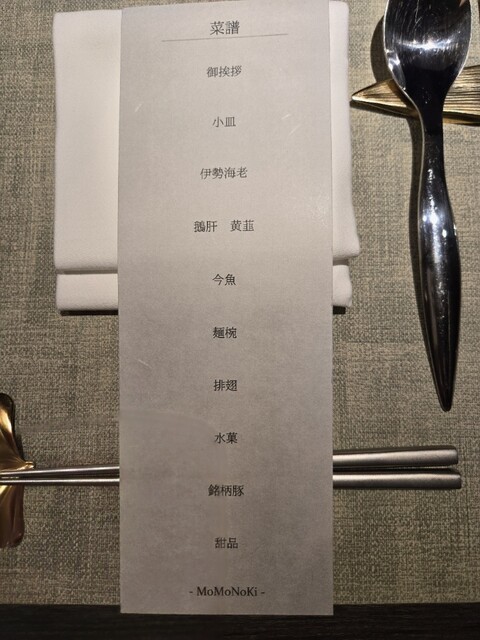 菜譜
御挨拶
小皿
伊勢海老
鵝肝　黄韮
今魚
麺椀
排翅
水菓
銘柄豚
甜品
- MoMoNoKi -